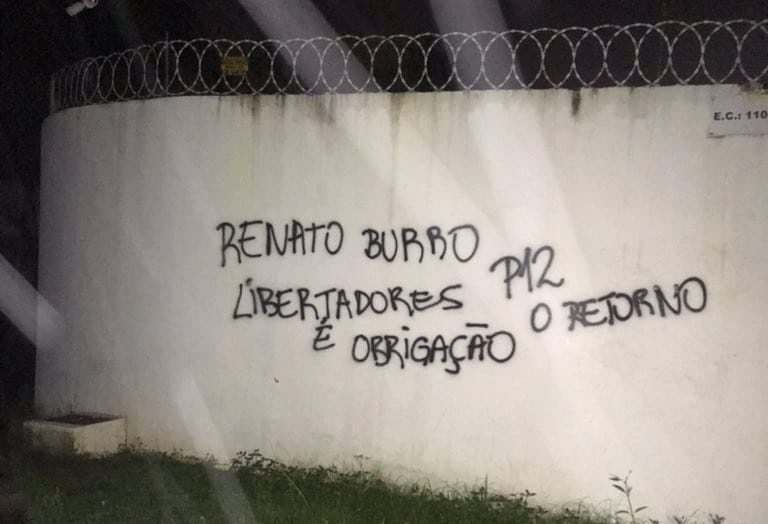 E.C.: 110
RENATO BURRO
P12
LIBERTADORES
O RETORNO
É OBRIGAÇÃO